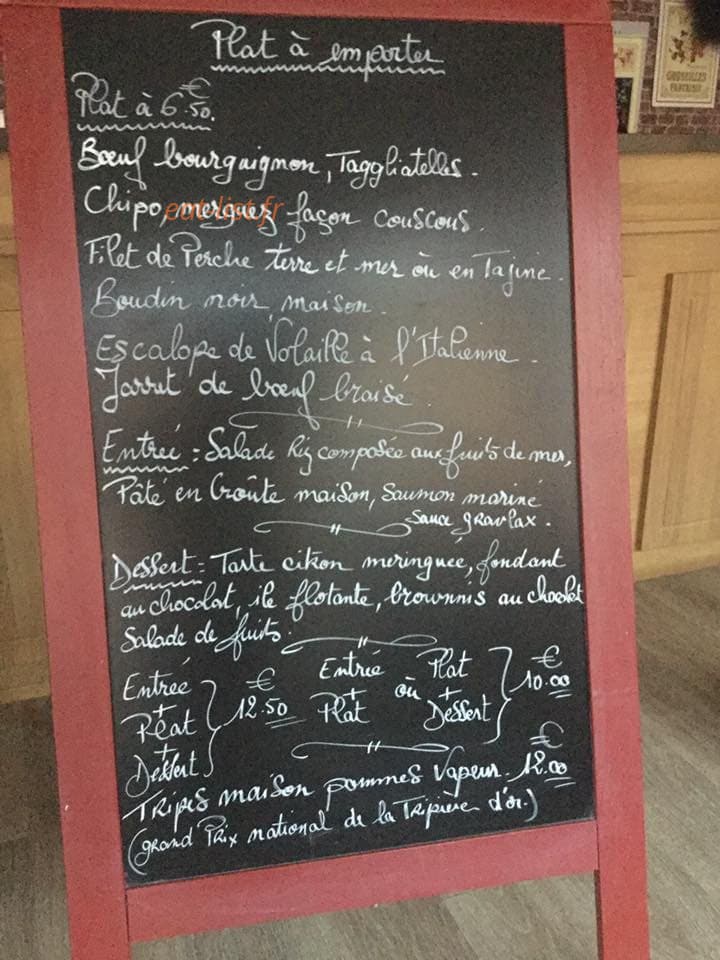 Plat à emporter
Plat à 6.50€.
Bœuf bourguignon, Taggliatelles.
Chipo, merguez façon couscous.
eat-list.fr
Filet de Perche terre et mer où en Tajine.
Boudin noir, maison.
Escalope de Volaille à l'Italienne.
Jarret de bœuf braisé.
Entreé : Salade Riz composée aux fruits de mer,
Pâté en Croûte maison, saumon mariné
sauce gravlax.
Dessert : Tarte citron meringuée, fondant
au chocolat, ile flotante, brownnis au chocolat
Salade de fruits.
Entreé + Plat + Dessert 12.50 €
Entreé + Plat où Plat + Dessert 10.00 €
Tripes maison pommes vapeur. 12.00 €
(grand Prix national de la Tripière d'or.)
GROSEILLES